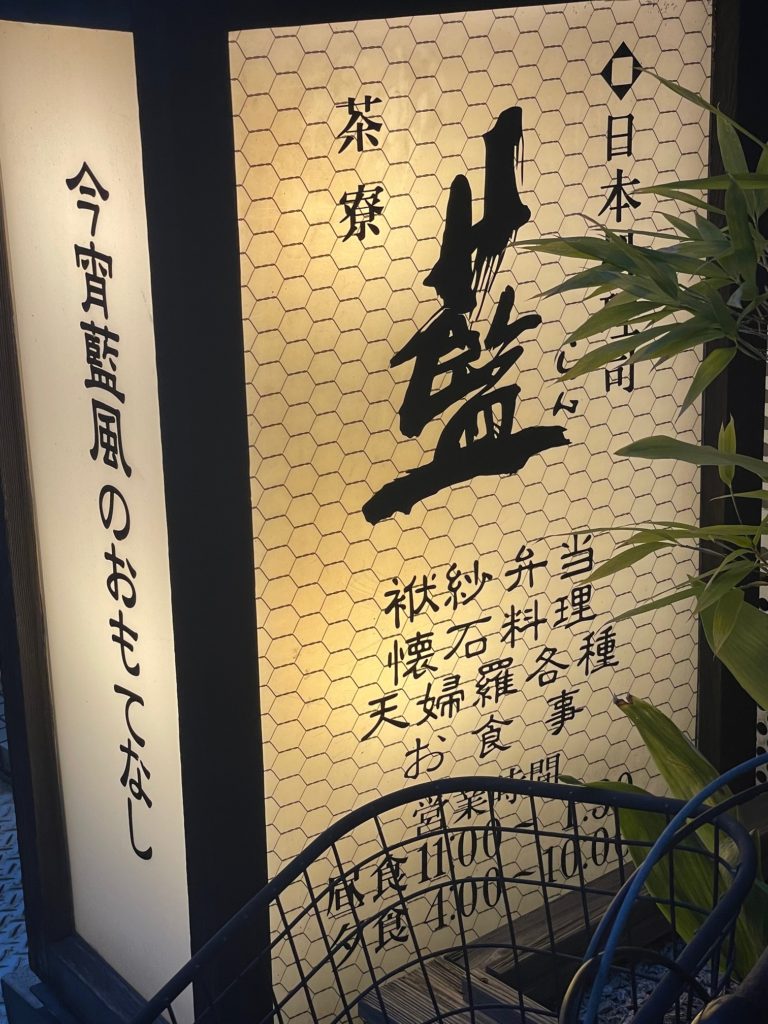 日本料理司
藍
しん
茶寮
袱紗弁当
懐石料理
天婦羅各種
お食事
営業時間
昼食 11.00 –
夕食 4.00 – 10.00
今宵藍風のおもてなし